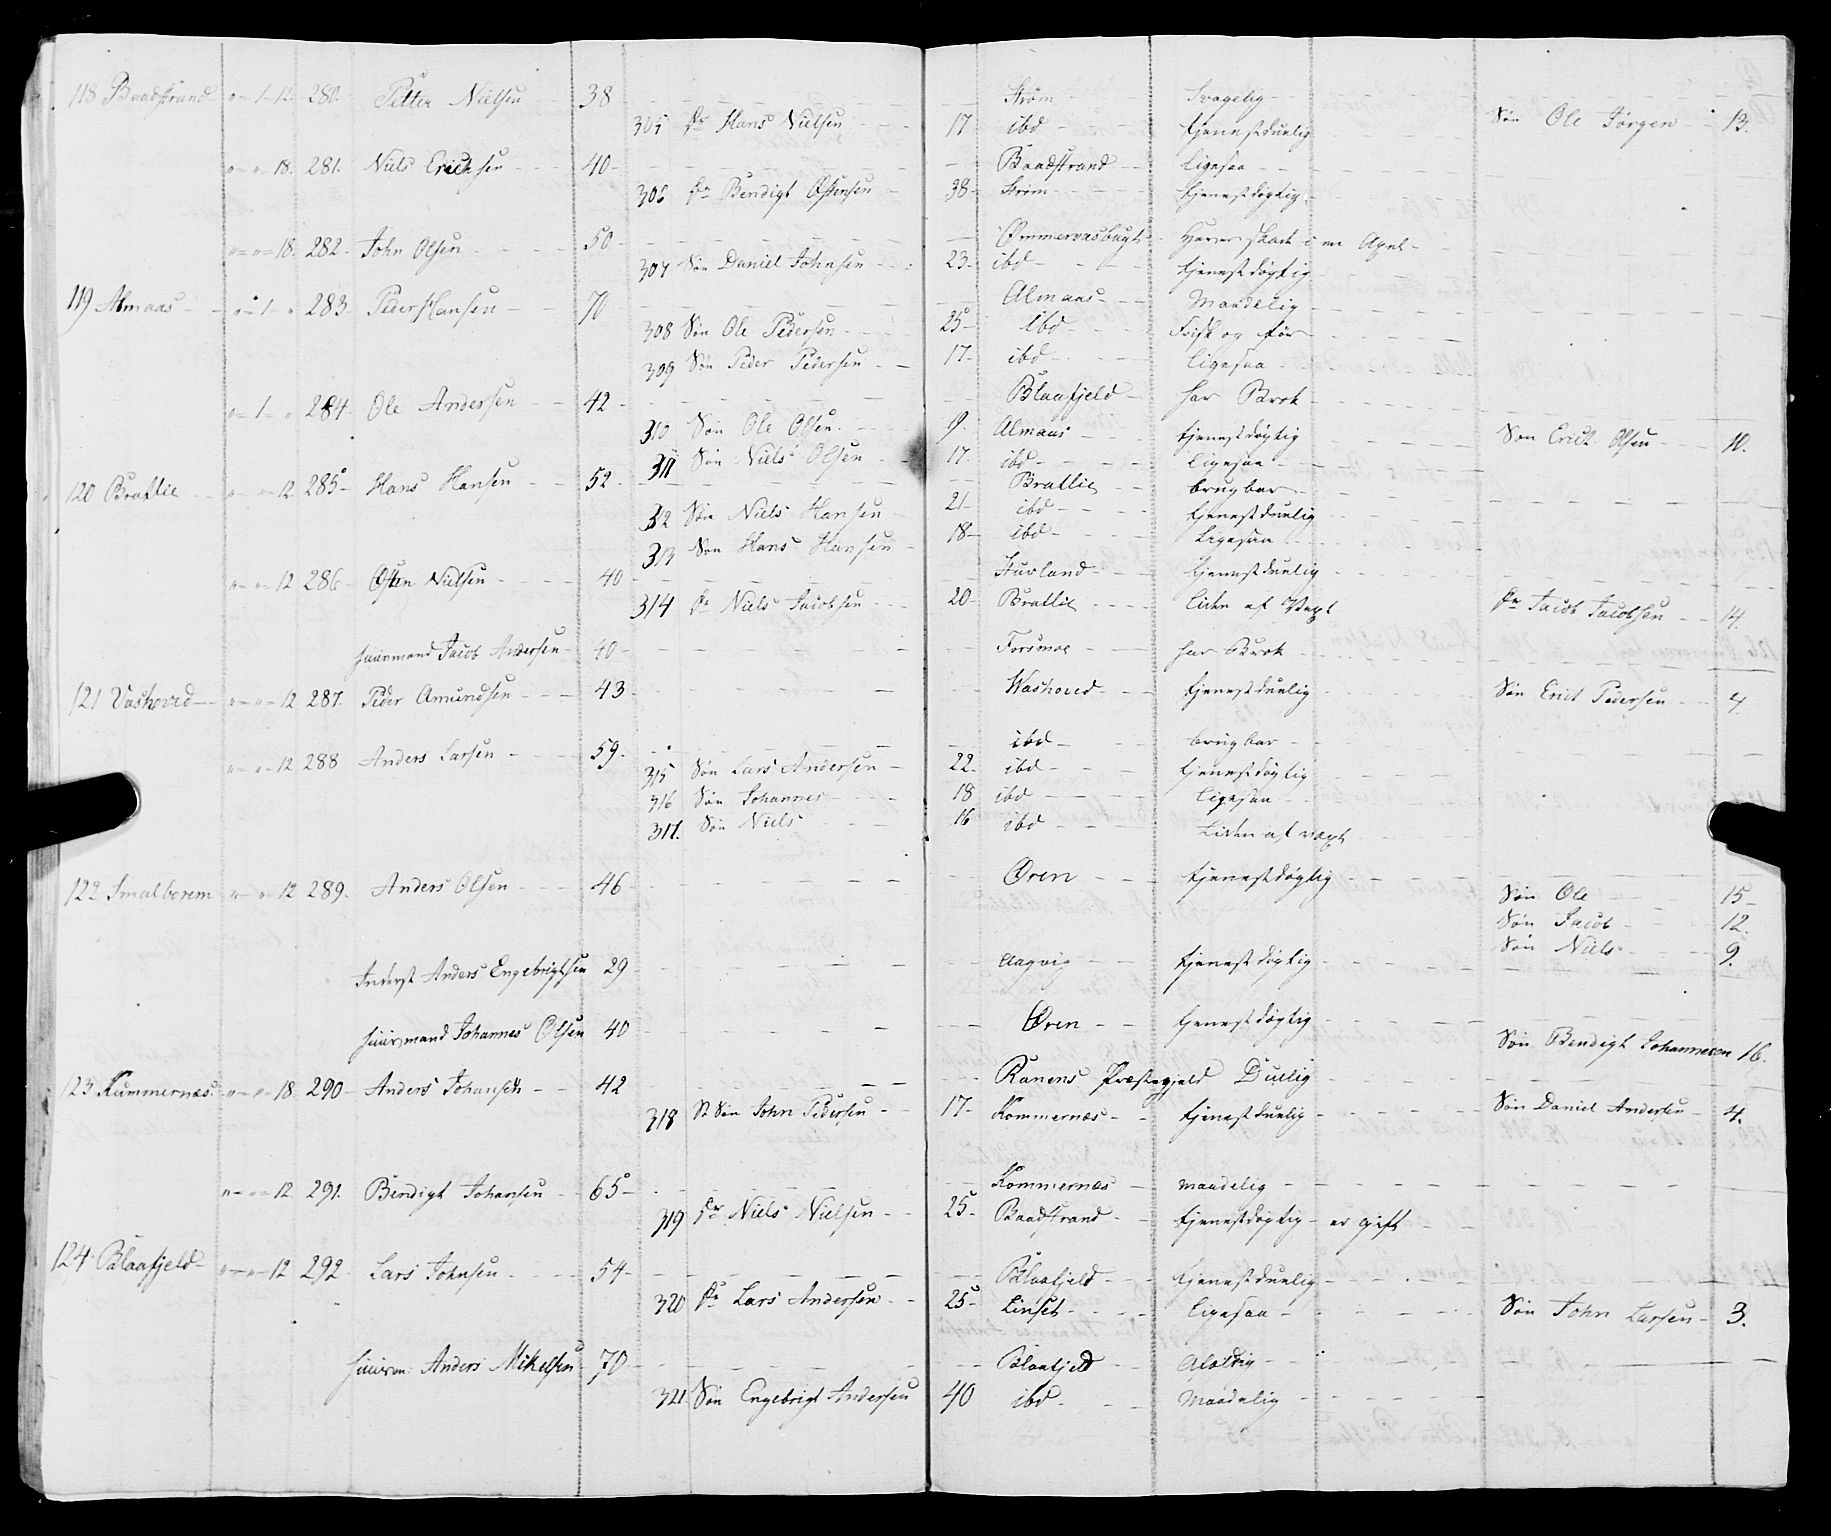 118 Baadstrand „ – 1 – 12. 280. Petter Nielsen 38 Strøm Svagelig
305 fr Hans Nielsen 17 ibd tjenestduelig Søn Ole Jørgen 13.
„ – „ – 18. 281. Niels Erichsen 40 Baadstrand ligesaa
306 fr Bendigt Ostensen 38 Strøm tjenestdøgtig
„ – „ – 18. 282 John Olsen 50 Ømmervasbugt Haver skade i en
307 Søn Daniel Johnsen 23 ibd tjenestdøgtig
119 Almaas „ – 1 „ 283 Peder Hansen 70 Almaas Maadelig
308 Søn Ole Pedersen 25 ibd Frisk og før
309 Søn Peder Pedersen 17 ibd ligesaa
„ – 1 – „ 284. Ole Andersen 42 Blaafjeld har Brok
310 Søn Ole Olsen 9. Almaas tjenestdøgtig Søn Erich Olsen 10.
311 Søn Niels Olsen 17. ibd ligesaa
120 Bratlie „ – „ – 12. 285 Hans Hansen 52 Bratlie brugbar
312 Søn Niels Hansen 21 ibd tjenestduelig
313 Søn Hans Hansen 18 ibd Ligesaa
„ – „ – 12 286 Osten Nielsen 40 Husland tjenestduelig
314 fr Niels Jacobsen 20 Bratlie liden af Vext fr Jacob Jacobsen 14.
huusmand Jacob Andersen 40 Forsmoe har Brok
121 Vashoved „ – „ – 12 287. Peder Amundsen 43 Washoved tjenestduelig Søn Erich Pedersen 4
„ – „ – 12 288 Anders Larsen 59 ibd brugbar
315 Søn Lars Andersen 22. ibd tjenestdøgtig
316 Søn Johannes 18 ibd ligesaa
317. Søn Niels 16 ibd Liden af vext
122 Smalborem „ – „ – 12 289. Anders Olsen 46 Øren tjenestdøgtig Søn Ole 15
Søn Jacob 12.
Søn Niels 9.
Inderst Anders Engebrigtsen 29 Aagvig tjenestdøgtig
huusmand Johannes Olsen 40 Øren tjenestdøgtig Søn Bendigt Johannesen 16.
123 Kummernæs „ – „ – 18. 290 Anders Johansen 42 Ranens Præstegjeld Duelig
318 St Søn John Pedersen 17 Kommernæs tjenestduelig Søn Daniel Andersen 4.
„ – „ – 12 291. Bendigt Johansen 65 Kommernæs maadelig
319 fr Niels Nielsen 25 Baadstrand tjenestdøgtig – er gift
124 Blaafjeld „ – „ – 12 292 Lars Johnsen 54 Blaafjeld tjenestduelig
320 fr Lars Andersen 25 Linset ligesaa Søn John Larsen 3.
huusm: Anders Mikelsen 70 Blaafjeld Afældig
321 Søn Engebrigt Andersen 40 ibd Maadelig